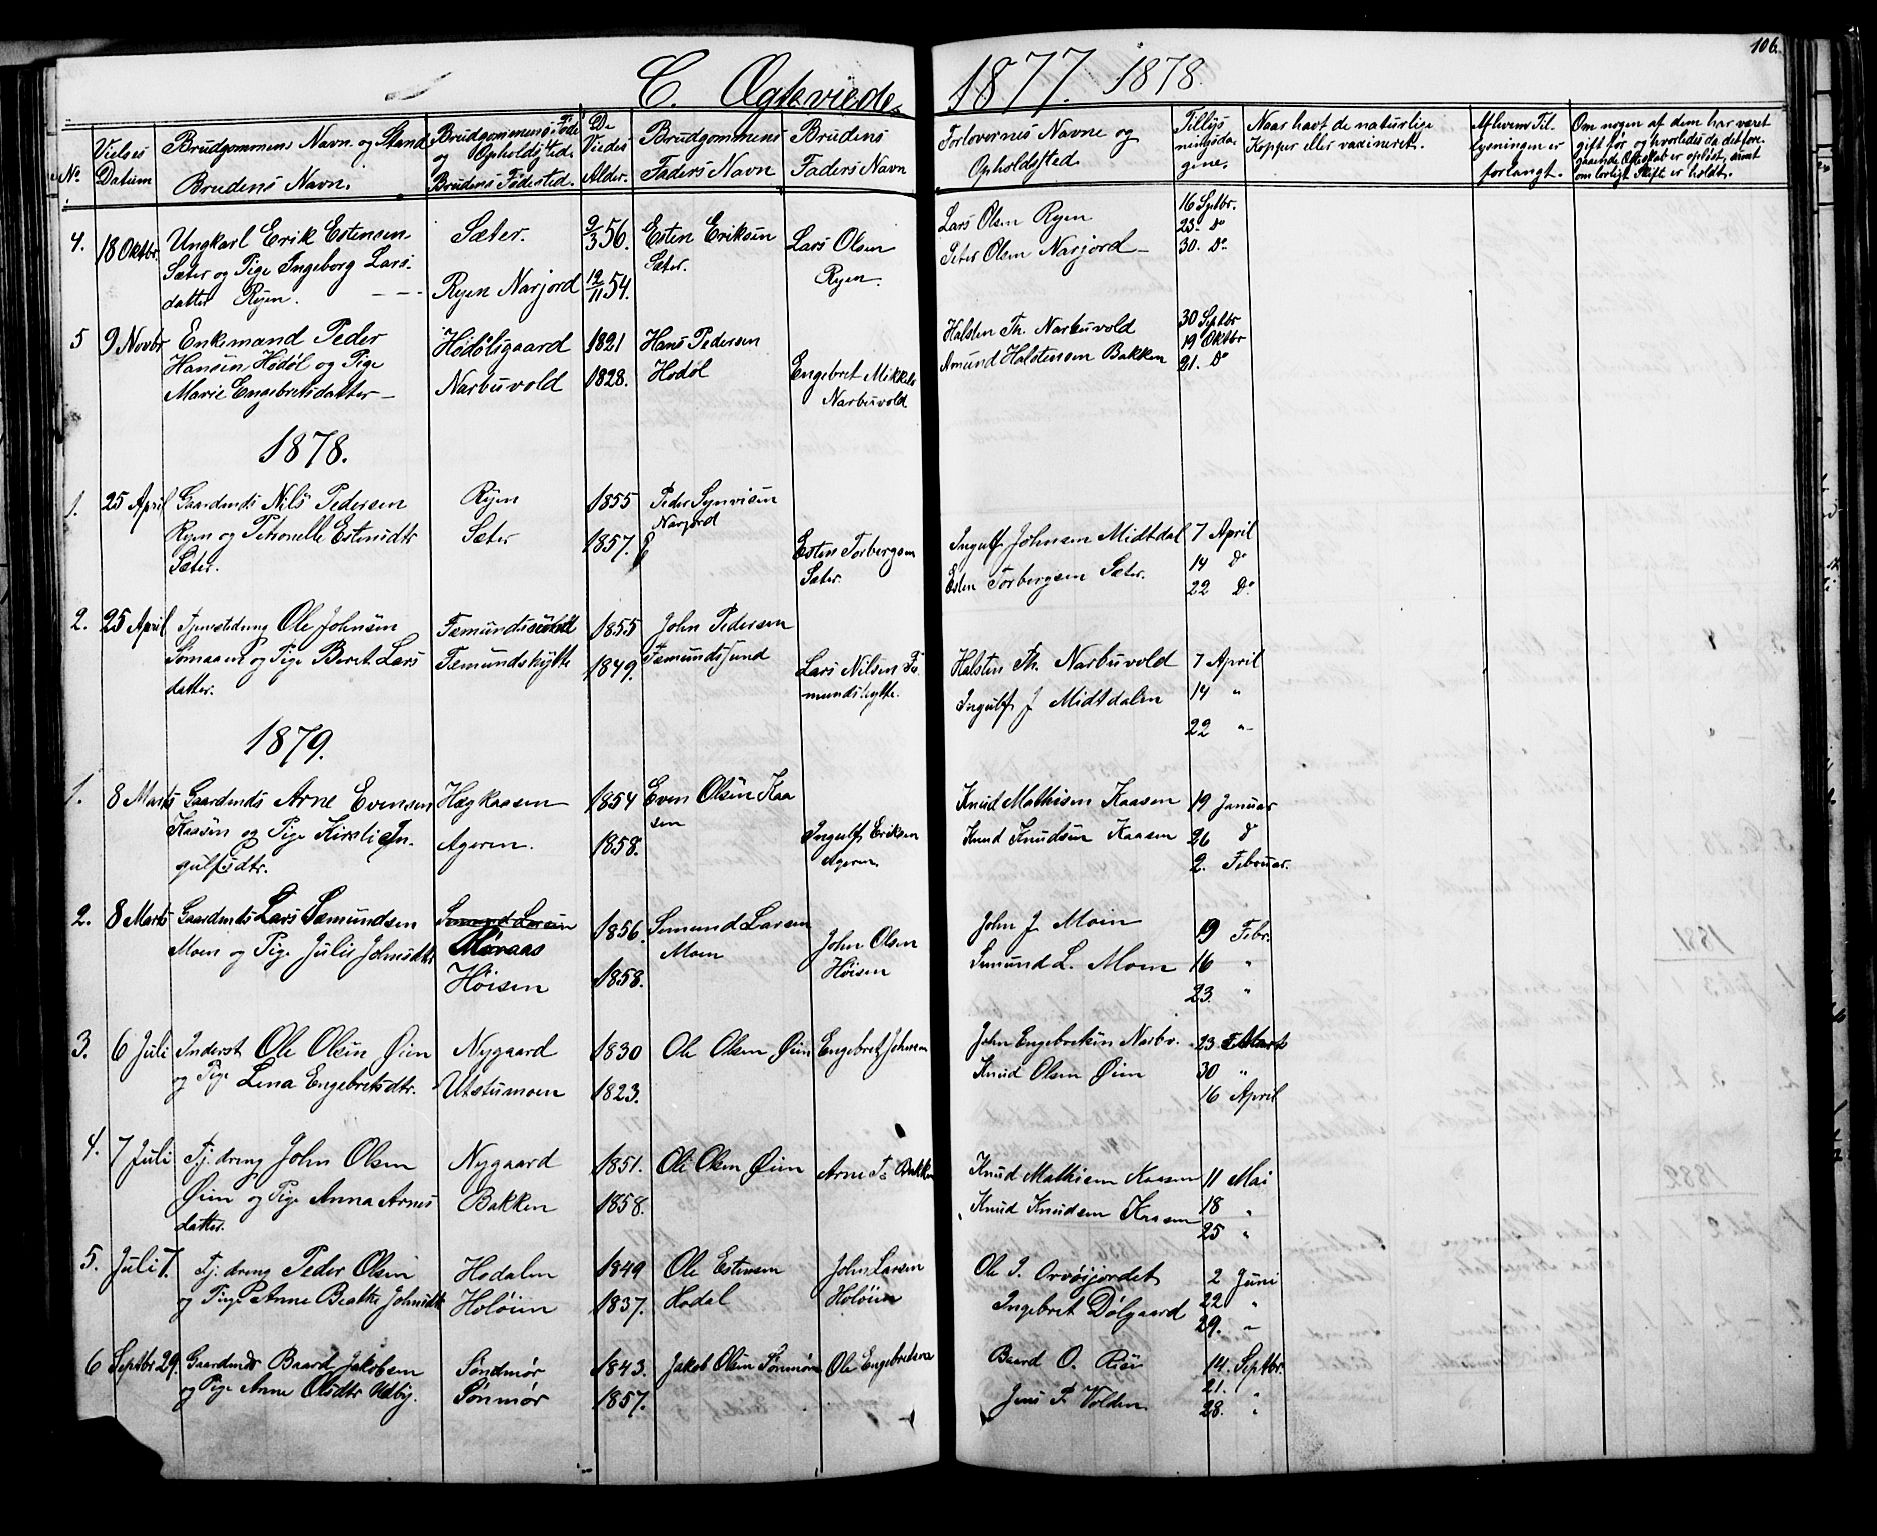 106.
C. Ægteviede. 1877. 1878.
No.
Vielses Datum
Brudgommens Navn og Stand
Brudens Navn.
Brudgommens Føde og Opholdssted.
Brudens Fødested.
De Viedes Alder.
Brudgommens Faders Navn
Brudens Faders Navn
Forlovernes Navne og Opholdsted.
Tillysningsdagene.
Naar havt de naturlige Kopper eller vaxineret.
Af hvem Tillysningen er forlangt.
Om nogen af dem har været gift før og hvorledes da det foregaaende Ægteskab er opløst, samt om lovligt Skifte er holdt.
4. 18 Oktbr.
Ungkarl Erik Estensen
Sæter og Pige Ingeborg Lars-
datter Ryen.
Sæter.
Ryen Narjord
9/3 56.
12/11 54.
Esten Eriksen
Sæter.
Lars Olsen
Ryen.
Lars Olsen Ryen
Peter Olsen Narjord
16 Septbr.
23. Do
30. Do
5 9 Novbr
Enkemand Peder
Hansen Hodøl og Pige
Marie Engebretsdatter
Hodølsgaard
Narbuvold
1821
1828.
Hans Pedersen
Hodøl
Engebret Mikkels
Narbuvold
Halsten Th. Narbuvold
Amund Halstensen Bakken
30 Septbr
19 Oktbr
21. Do
1878.
1. 25 April
Gaardmds Nils Pedersen
Ryen og Petronelle Estensdtr
Sæter.
Ryen
Sæter
1855
1857.
Peder Synvisen
Narjord
Esten Torbergsen
Sæter.
Ingulf Johnsen Midtdal
Esten Torbergsen Sæter.
7 April
14 Do
22 Do
2. 25 April
Tjenestedreng Ole Johnsen
Sømaaen og Pige Beret Lars
datter.
Fæmundshytte
1855
1849.
John Pedersen
Fæmundsund
Lars Nilsen Fæ
mundshytte.
Halsten Th. Narbuvold
Ingulf J Midtdalen
7 April
14 "
22 "
1879.
1. 8 Marts
Gaardmds Arne Evensen
Kaasen og Pige Kirsti In-
gulfsdtr.
Hægkaasen
Ageren.
1854
1858.
Even Olsen Kaa
sen
Ingulf Eriksen
Ageren
Knud Mathisen Kaasen
Knud Knudsen Kaasen
19 Januar
26 Do
2. Februar.
2. 8 Marts
Gaardmds Lars Semundsen
Moen og Pige Julie Johnsdtr
Semund Larsen
Røraas
Høisen
1856.
1858.
Semund Larsen
Moen
John Olsen
Høisen
John J. Moen
Semund L. Moen
9 Febr.
16 "
23. "
3. 6 Juli
Inderst Ole Olsen Øien
og Pige Lena Engebretsdtr.
Nygaard
Utstumoen
1830
1823.
Ole Olsen Øien
Engebret Johnsen
John Engebretsen Narbv.
Knud Olsen Øien
23 Marts
30 "
16 April
4. 7 Juli
Tj. dreng John Olsen
Øien og Pige Anna Arnes
datter.
Nygaard
Bakken
1851.
1858.
Ole Olsen Øien
Arne Bakken
Knud Mathisen Kaasen
Knud Knudsen Kaasen
11 Mai
18 "
25 "
5. Juli 7.
Tj. dreng Peder Olsen
og Pige Anne Beathe Johnsdtr
Hodalen
Holøien
1849
1837.
Ole Estensen
Hodal
John Larsen
Holøien
Ole P. Orvosjordet
Ingebret Dølgaard
2 Juni
22 "
29. "
6 Septbr 29.
Gaardmds Baard Jakobsen
og Pige Anne Olsdtr Udby.
Søndmør
Sønmør
1843.
1857.
Jakob Olsen Sønmør
Ole Engebretsen
Baard O. Røe
Jens P. Volden
14. Septbr.
21. "
28. "